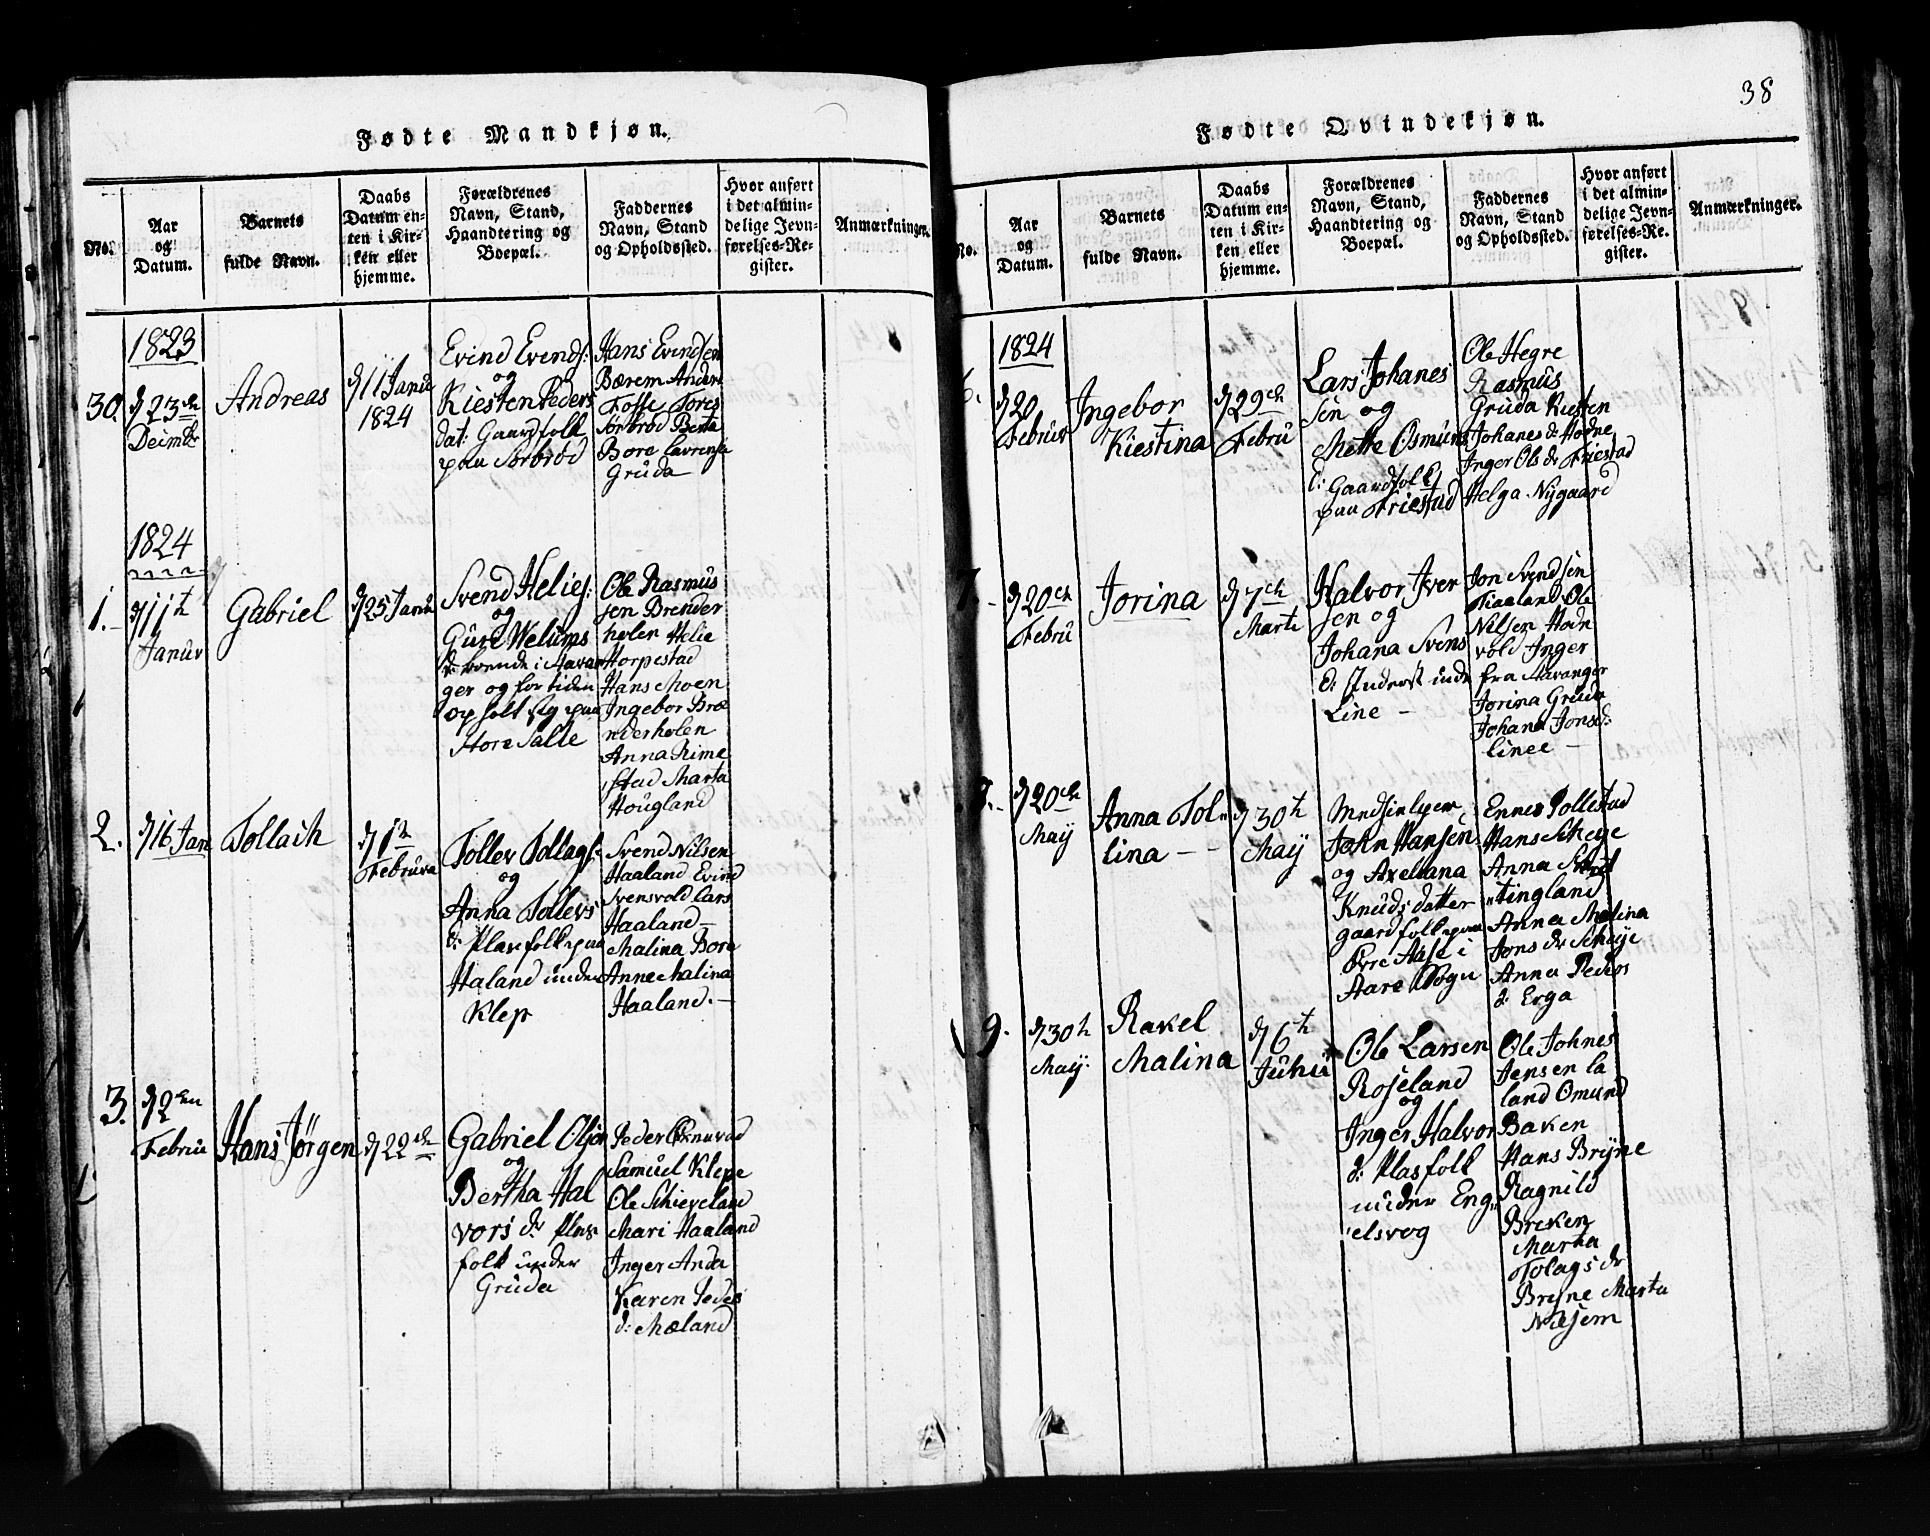 Fødte Mandkjøn.
No.
Aar
og
Datum.
Barnets
fulde Navn.
Daabs
Datum en-
ten i Kir-
ken eller
hjemme.
Forældrenes
Navn, Stand,
Haandtering og
Boepæl.
Faddernes
Navn, Stand
og Opholdssted.
Hvor anført
i det almin-
delige Jevn-
førelses-Re-
gister.
Anmærkninger.
1823
30.
d 23de
Andreas
d 11 Janu
1824
Evind Evends:
og
Kiesten Peders
dat: Gaardfolk
paa Sørbrød
Hans Evendsen
Bærem Anders
Fosse Tores
Sørbrød Berta
Bore Lavrense
Gruda
1824
1.
d 11t
Januv
Gabriel
d 25 Janu
Svend Helies:
og
Guro Welums
d: boende i Stavan
ger og for tiden
opholt sig paa
Store Salte
Ole Rasmus
sen Brender
holen Helie
Horpestad
Hans Moen
Ingebor Bræ
nderholen
Anna Rime
stad Marta
Hougland
2.
d 16 Jan
Tollach
d 1t
Februa
Toller Tollags:
og
Anna Tollevs
d: Plasfolk paa
Haland under
Klep
Svend Nilsen
Haaland Evind
Svensvold Lars
Haaland —
Malina Bore
Anne Malina
Haaland. —
3.
d 2en
Februu
Hans Jørgen
d 22de
Gabriel Olsen
og
Bertha Hal
vors dr Plas
folk under
Gruda
Peder
Samuel Klepe
Ole Schieveland
Mari Haaland
Inger Anda
Karen Peders
d: Mæland
38
Fødte Qvindekjøn.
No.
Aar
og
Datum.
Barnets
fulde Navn.
Daabs
Datum en-
ten i Kir-
ken eller
hjemme.
Forældrenes
Navn, Stand,
Haandtering og
Boepæl.
Faddernes
Navn, Stand
og Opholdssted.
Hvor anført
i det almin-
delige Jevn-
førelses-Re-
gister.
Anmærkninger.
1824
6.
d 20
Februv
Ingebor
Kiestina
d 29de
Febru
Lars Johanes
sen og
Mette Osmuns
d: Gaardfolk
paa Friestad
Ole Hegre
Rasmus
Gruda Kiesten
Johanes d: Hodne
Inger Ols dr Friestad
Helga Nygaard
7.
d 20de
Febru
Jorina
d 7de
Marti
Halvor Iver
sen og
Johana Svens
d: Inderst inde
Line —
Jon Svendsen
Tiaaland Ole
Nilsen Hodn
vold Inger
fra Stavanger
Jorina Gruda
Johana Jonsd:
Linee —
8.
d 20de
May
Anna Tol-
lina —
d 30t
May
John Hansen
og Axeliana
Knuds datter
gaardfolk paa
Øvre Aase i
Aare Sogn
Ennes Pollestad
Hans Scheije
Anna
Tingland
Anna Malina
Jons dr Scheije
Anna Peders
d: Erga
9.
d 30t
May.
Rakel
Malina
d 6t
Juhii
Ole Larsen
Roseland
og
Inger Halvor
d: Plasfolk
under Eng-
elsvog
Ole Johnes
Jensen La
land Omund
Baken
Hans Bryne
Ragnild
Breken
Marta
Tolags dr
Bryne Marta